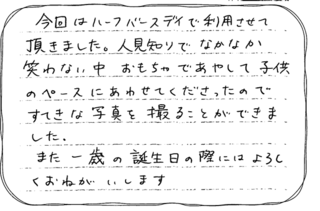 今回はハーフバースデイで利用させて
頂きました。人見知りでなかなか
笑わない中 おもちゃであやして子供
のペースにあわせてくださったので
すてきな写真を撮ることができま
した。
また一歳の誕生日の際にはよろし
くおねがいします